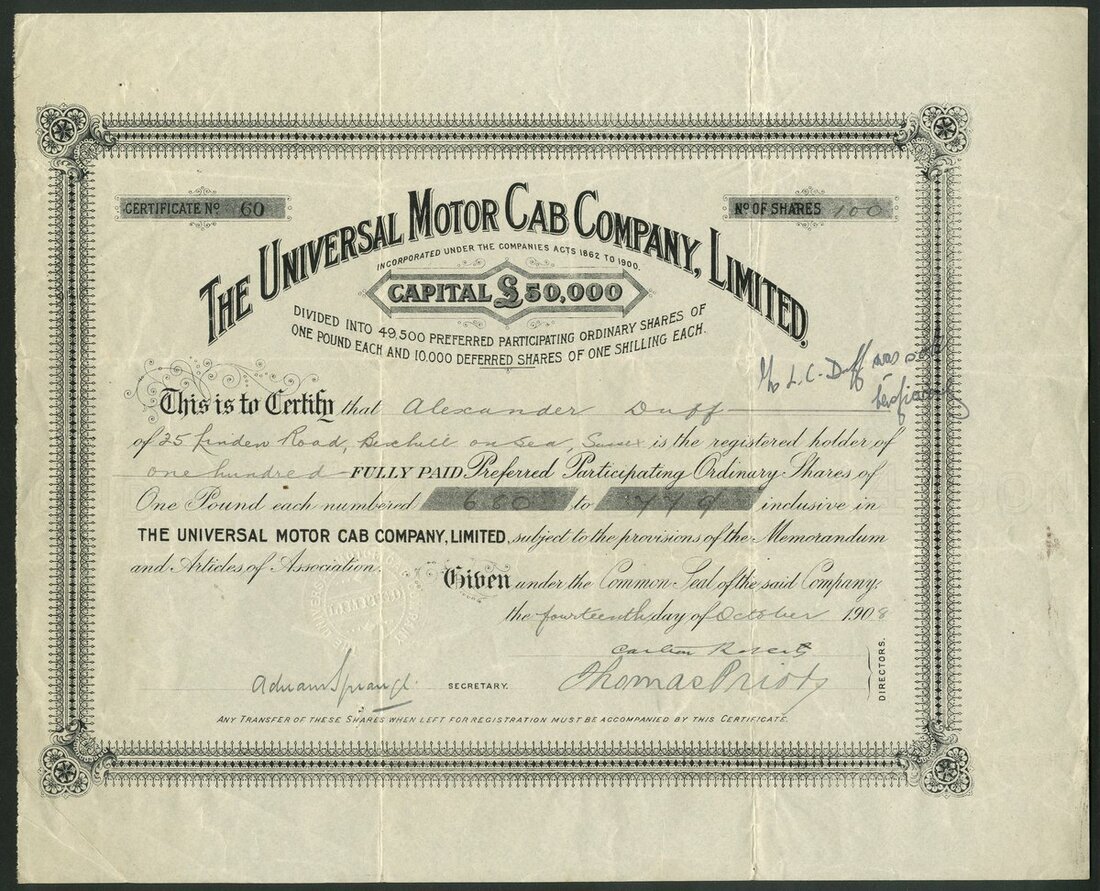 CERTIFICATE No 60
No OF SHARES 100
THE UNIVERSAL MOTOR CAB COMPANY, LIMITED.
INCORPORATED UNDER THE COMPANIES ACTS 1862 TO 1900.
CAPITAL £50,000
DIVIDED INTO 49,500 PREFERRED PARTICIPATING ORDINARY SHARES OF
ONE POUND EACH AND 10,000 DEFERRED SHARES OF ONE SHILLING EACH.
L. C. Duff
This is to Certify that Alexander Duff
of 25 Linden Road, Bexhill on Sea, Sussex is the registered holder of
one hundred FULLY PAID Preferred Participating Ordinary Shares of
One Pound each numbered 680 to 779 inclusive in
THE UNIVERSAL MOTOR CAB COMPANY, LIMITED, subject to the provisions of the Memorandum
and Articles of Association.
Given under the Common Seal of the said Company,
the fourteenth day of October 1908
Thomas
SECRETARY.
DIRECTORS.
ANY TRANSFER OF THESE SHARES WHEN LEFT FOR REGISTRATION MUST BE ACCOMPANIED BY THIS CERTIFICATE.